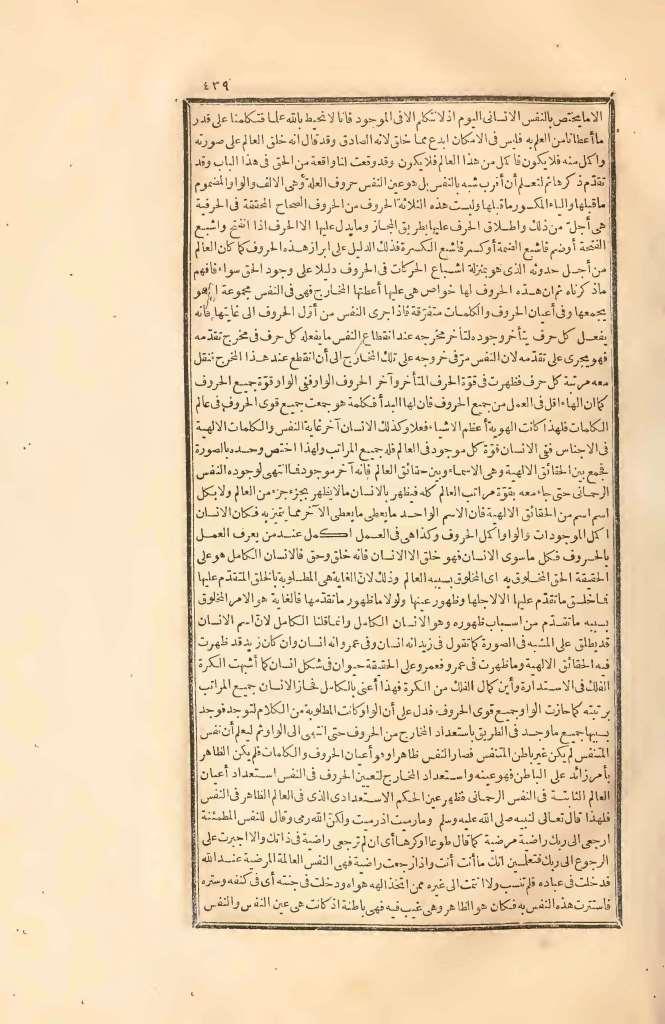 ٤٣٩
الا ما يختص بالنفس الانسانى اليوم اذ لا نتكلم الا فى الموجود فانا لا نحيط بالله علما فتكلمنا على قدر
ما أعطانا من العلم به فليس فى الامكان ابدع مما خلق لانه الصادق وقد قال انه خلق العالم على صورته
واكمل منه فلا يكون فاكمل من هذا العالم فلا يكون وقد وقعت لنا واقعة من الحق فى هذا الباب وقد
تقدّم ذكرها ثم لتعلم أن أقرب شبه بالنفس بل هو عين النفس حروف العلة وهى الالف والواو المضموم
ما قبلها والياء المكسور ما قبلها وليست هذه الثلاثة الحروف من الحروف الصحاح المحققة فى الحرفية
هى أجلّ من ذلك واطلاق الحرف عليها بطريق المجاز وما يدل عليها الا الحرف اذا انفتح واشبع
الفتحة أو ضم فاشبع الضمة أو كسر فاشبع الكسرة فذلك الدليل على ابراز هذه الحروف كما كان العالم
من أجل حدوثه الذى هو بمنزلة اشباع الحركات فى الحروف دليلا على وجود الحق سواء فافهم
ما ذكرناه ثم ان هذه الحروف لها خواص هى عليها أعطتها المخارج فهى فى النفس مجموعة اذ هو
يجمعها وفى أعيان الحروف والكلمات متفرّقة فاذا جرى النفس من أوّل الحروف الى غايتها فانه
يفعل كل حرف يتأخر وجوده لتأخر مخرجه عند انقطاع النفس ما يفعله كل حرف فى مخرج تقدّمه
فهو يجرى على تقدّمه لان النفس مرّ فى خروجه على تلك المخارج الى أن انقطع عند هذا المخرج فنقل
معه مرتبة كل حرف فظهرت فى قوّة الحرف المتأخر وآخر الحروف الواو ففى الواو قوّة جميع الحروف
كما ان الهاء اقل فى العمل من جميع الحروف فان لها البدأ فكلمة هو جمعت جميع قوى الحروف فى عالم
الكلمات فلهذا كانت الهوية أعظم الاشياء فعلا وكذلك الانسان آخر غاية النفس والكلمات الالهية
فى الاجناس ففى الانسان قوّة كل موجود فى العالم فله جميع المراتب ولهذا اختص وحده بالصورة
فجمع بين الحقائق الالهية وهى الاسماء وبين حقائق العالم فانه آخر موجود فما انتهى لوجوده النفس
الرحمانى حتى جاء معه بقوّة مراتب العالم كله فيظهر بالانسان ما لا يظهر بجزء جزء من العالم ولا بكل
اسم اسم من الحقائق الالهية فان الاسم الواحد ما يعطى ما يعطى الآخر مما يتميز به فكان الانسان
اكمل الموجودات والواو اكمل الحروف وكذا هى فى العمل اكمل عند من يعرف العمل
بالحروف فكل ما سوى الانسان فهو خلق الا الانسان فانه خلق وحق فالانسان الكامل هو على
الحقيقة الحق المخلوق به اى المخلوق بسببه العالم وذلك لانّ الغاية هى المطلوبة بالخلق المتقدّم عليها
فما خلق ما تقدّم عليها الا لاجلها وظهور عينها ولولا ما ظهور ما تقدّمها فالغاية هو الامر المخلوق
بسببه ما تقدّم من اسباب ظهوره وهو الانسان الكامل وانما قلنا الكامل لانّ اسم الانسان
قد يطلق على المشبه فى الصورة كما تقول فى زيد انه انسان وفى عمرو انه انسان وان كان زيد قد ظهرت
فيه الحقائق الالهية وما ظهرت فى عمرو فعمرو على الحقيقة حيوان فى شكل انسان كما أشبهت الكرة
الفلك فى الاستدارة وأين كمال الفلك من الكرة فهذا أعنى بالكامل فحاز الانسان جميع المراتب
برتبته كما حازت الواو جميع قوى الحروف فدل على أن الواو كانت المطلوبة من الكلام لتوجد فوجد
بسببها جميع ما وجد فى الطريق باستعداد المخارج من الحروف حتى انتهى الى الواو ثم ليعلم أن نفس
المتنفس لم يكن غير باطن المتنفس فصار النفس ظاهرا وهو أعيان الحروف والكلمات فلم يكن الظاهر
بأمر زائد على الباطن فهو عينه واستعداد المخارج لتعيين الحروف فى النفس استعداد أعيان
العالم الثابتة فى النفس الرحمانى فظهر عين الحكم الاستعدادى الذى فى العالم الظاهر فى النفس
فلهذا قال تعالى لنبيه صلى الله عليه وسلم وما رميت اذ رميت ولكنّ الله رمى وقال للنفس المطمئنة
ارجعى الى ربك راضية مرضية كما قال طوعا او كرها أى ان لم ترجعى راضية فى ذاتك والا اجبرت على
الرجوع الى ربك فتعلمين انك ما أنت أنت واذا رجعت راضية فهى النفس العالمة المرضية عند الله
فدخلت فى عباده فلم تنسب ولا انتمت الى غيره ممن اتخذ الهه هواه ودخلت فى جنته أى فى كنفه وستره
فاستترت هذه النفس به فكان هو الظاهر وهى غيب فيه فهى باطنة اذ كانت هى عين النفس والنفس